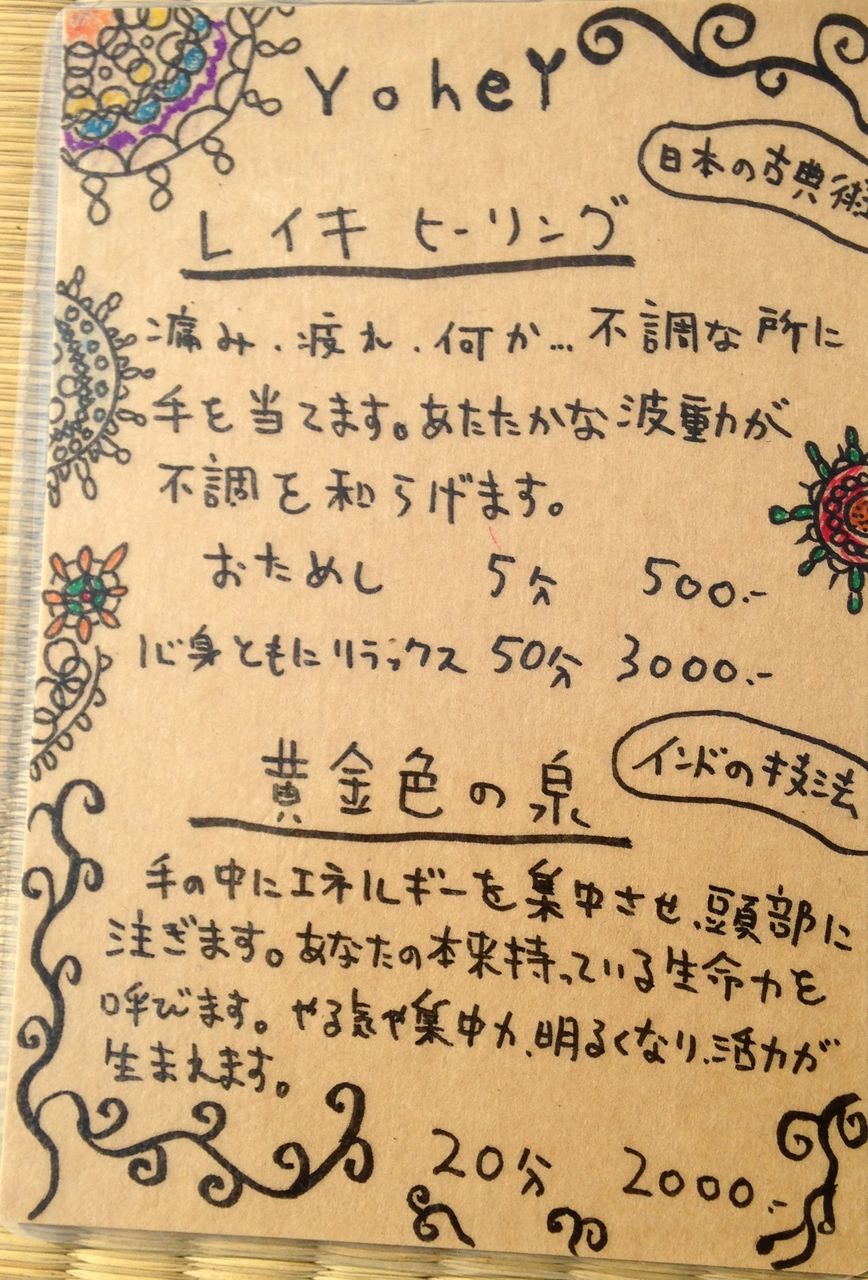 YoheY
日本の古典術
レイキ ヒーリング
痛み、疲れ、何か…不調な所に
手を当てます。あたたかな波動が
不調を和らげます。
おためし 5分 500.-
心身ともにリラックス 50分 3000.-
インドの技法
黄金色の泉
手の中にエネルギーを集中させ、頭部に
注ぎます。あなたの本来持っている生命力を
呼びます。やる気や集中力、明るくなり、活力が
生まれます。
20分 2000.-